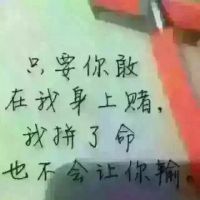 只要你敢
在我身上赌,
我拼了命
也不会让你输。